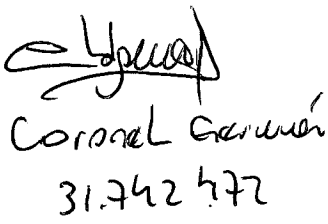 Coronel Germán
31.742 472